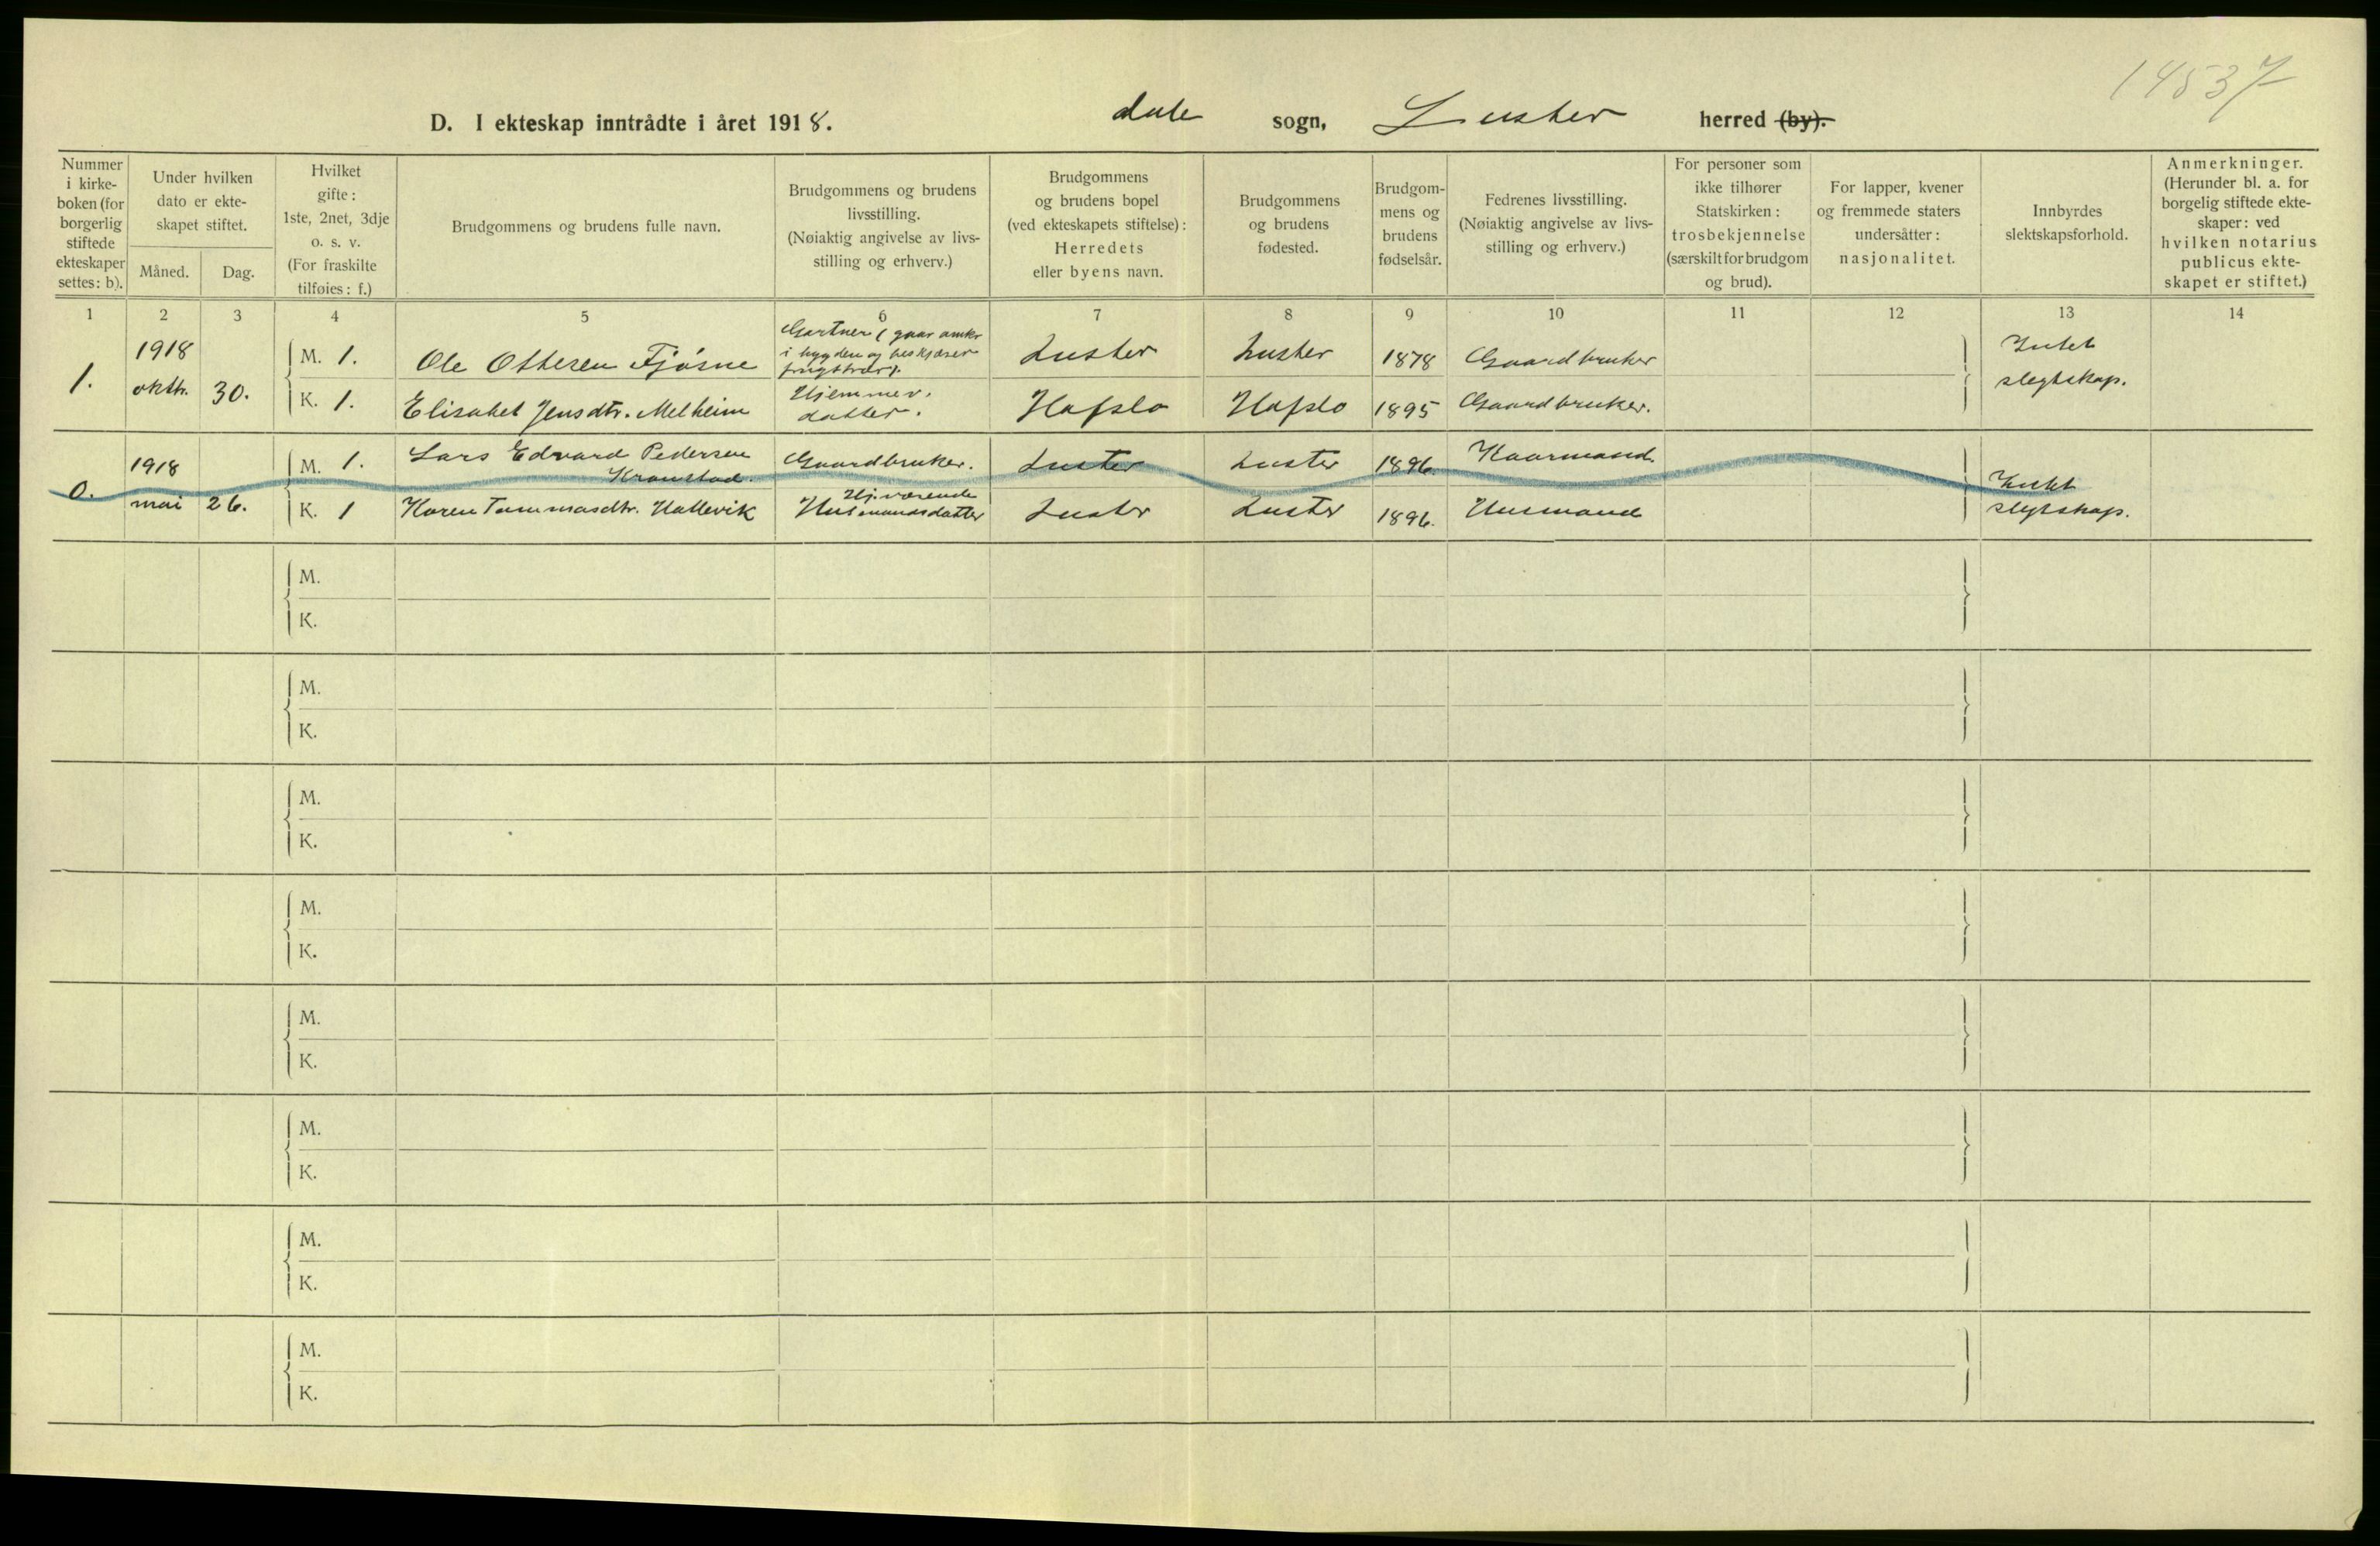 14537
D. I ekteskap inntrådte i året 1918. Dale sogn, Luster herred (by).
Nummer i kirkeboken (for borgerlig stiftede ekteskaper settes: b).
Under hvilken dato er ekteskapet stiftet.
Måned. Dag.
Hvilket gifte: 1ste, 2net, 3dje o. s. v. (For fraskilte tilføies: f.)
Brudgommens og brudens fulle navn.
Brudgommens og brudens livsstilling. (Nøiaktig angivelse av livsstilling og erhverv.)
Brudgommens og brudens bopel (ved ekteskapets stiftelse): Herredets eller byens navn.
Brudgommens og brudens fødested.
Brudgommens og brudens fødselsår.
Fedrenes livsstilling. (Nøiaktig angivelse av livsstilling og erhverv.)
For personer som ikke tilhører Statskirken: trosbekjennelse (særskilt for brudgom og brud).
For lapper, kvener og fremmede staters undersåtter: nasjonalitet.
Innbyrdes slektskapsforhold.
Anmerkninger. (Herunder bl. a. for borgelig stiftede ekteskaper: ved hvilken notarius publicus ekteskapet er stiftet.)
1 2 3 4 5 6 7 8 9 10 11 12 13 14
1. 1918 oktb. 30.
M. 1. Ole Ottesen Fjøsne Gartner (gaar omkr i bygden og beskjærer frugttrær). Luster Luster 1878 Gaardbruker Intet slegtskap.
K. 1. Elisabet Jensdtr. Melheim Hjemmev. datter. Hafslo Hafslo 1895 Gaardbruker.
0. 1918 mai 26.
M. 1. Lars Edvard Pedersen Kronstad. Gaardbruker. Luster Luster 1896. Kaarmand. Intet slegtskap.
K. 1 Karen Tommasdtr. Hallevik Hj.værende Husmandsdatter Luster Luster 1896. Husmand
M.
K.
M.
K.
M.
K.
M.
K.
M.
K.
M.
K.
M.
K.
M.
K.